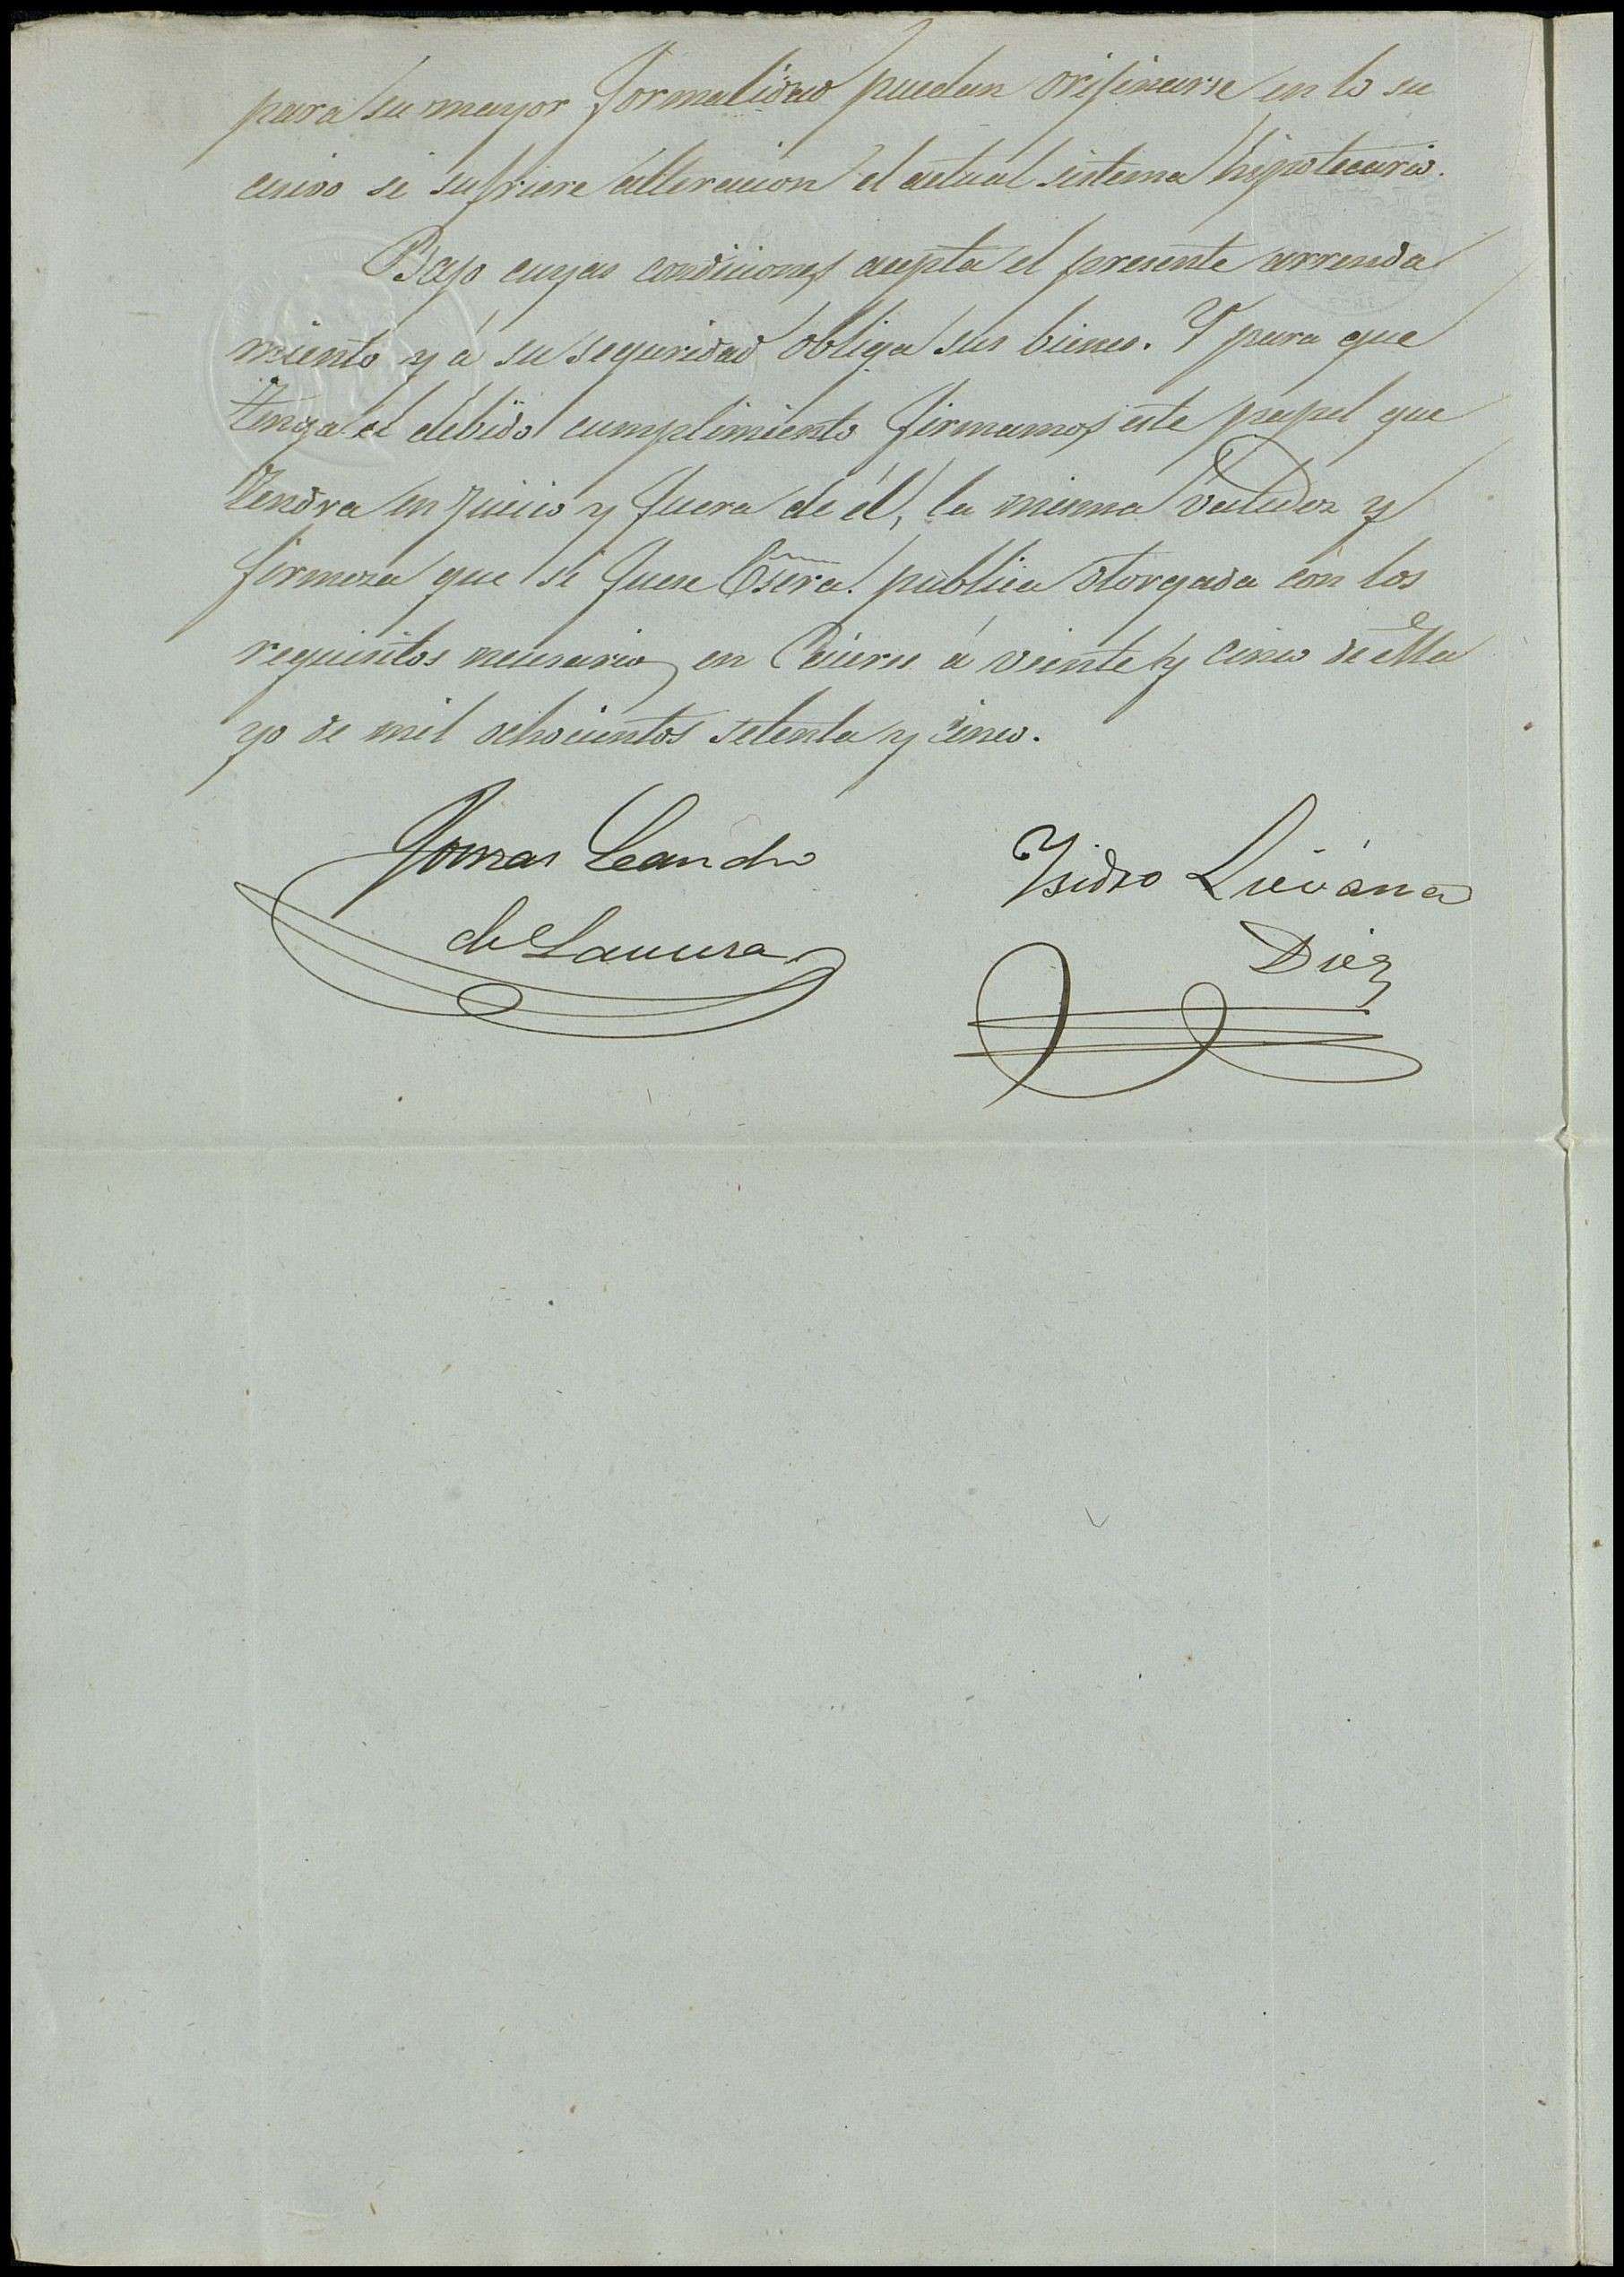 para su mayor formalidad puedan orijinarse en lo su
cesivo si sufriere alteracion el actual sistema hipotecario.
Bajo cuyas condiciones acepta el presente arrenda
miento y á su seguridad obliga sus bienes. Y para que
tenga el debido cumplimiento firmamos este papel que
tendra en juicio y fuera de él, la misma validez y
firmeza que si fuese Escra. publica otorgada con los
requisitos necesarios en á veinte y cinco de Ma
yo de mil ochocientos setenta y cinco.
Tomas Leandro
de
Ysidro Liévana
Diez